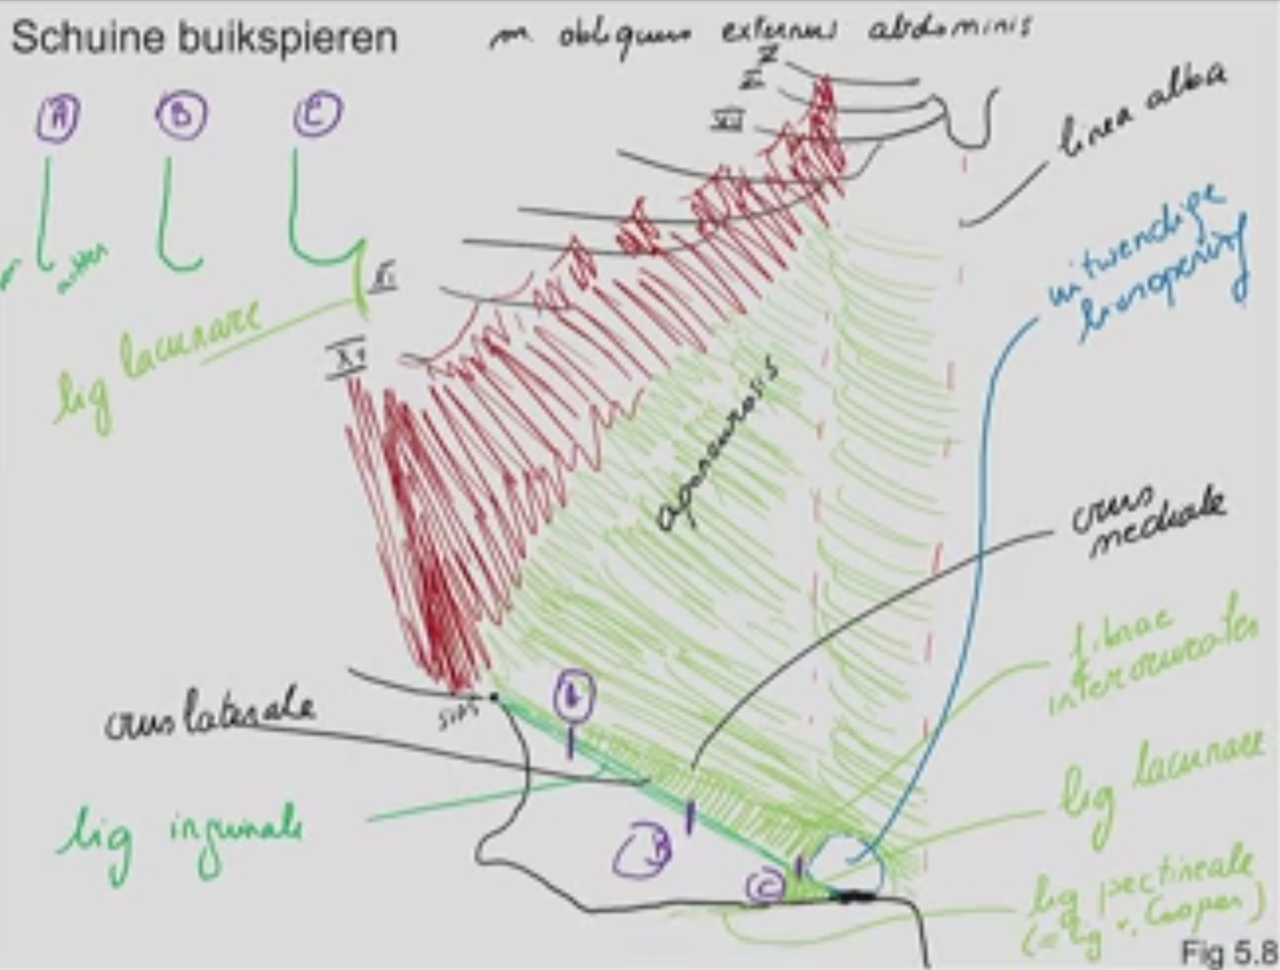 Schuine buikspieren
m. obliquus externus abdominis
X
XII
linea alba
A
B
C
uitwendige
liesopening
buiten
XI
lig lacunare
aponeurosis
crus
mediale
fibrae
intercrurales
crus laterale
SIAS
A
lig inguinale
B
lig lacunare
C
lig pectineale
(= lig v. Cooper)
Fig 5.8